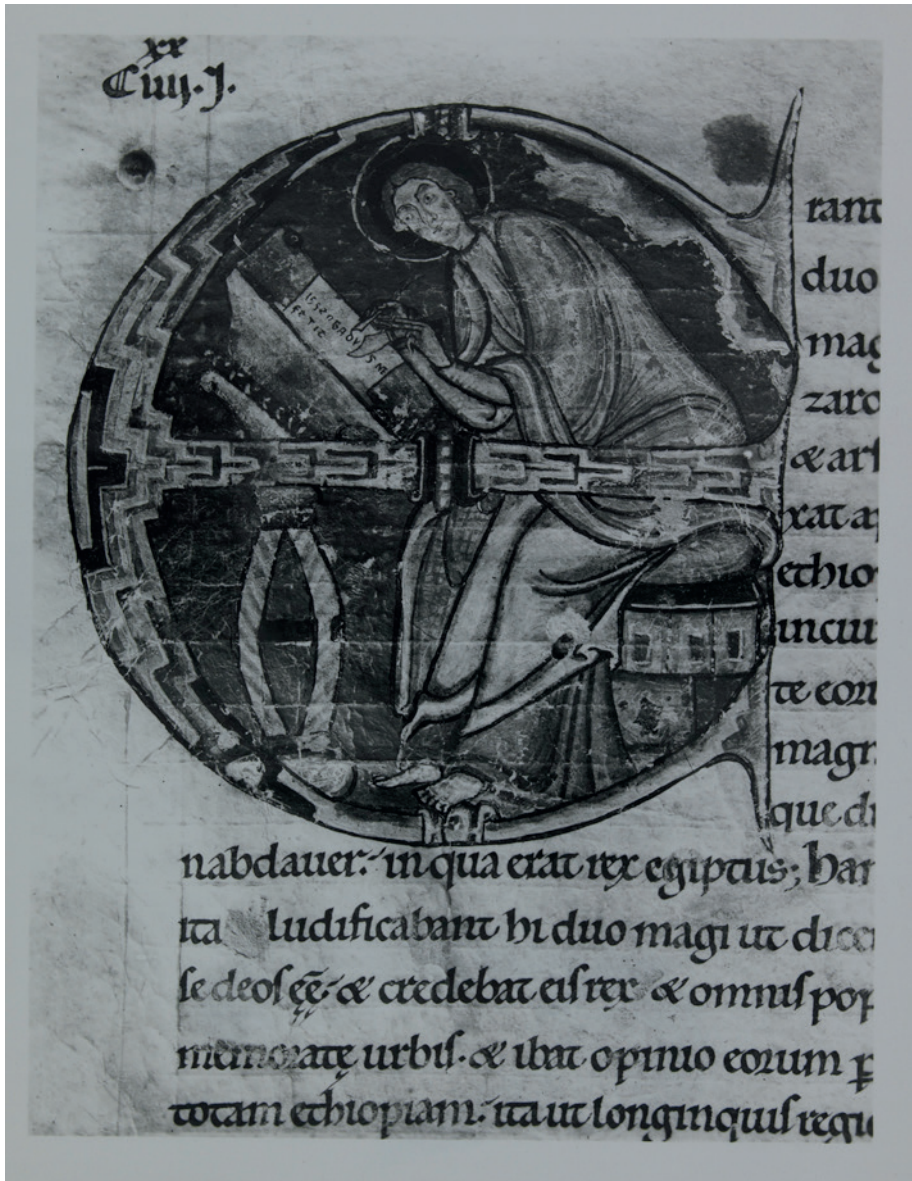 xx
Ciiij.j.
rant
duo
mag
zaro
& arf
xat ap
ethio
incui
te eoru
magn
que di
nabdauer. in qua erat rex egiptus; han
ita ludificabant hi duo magi ut dice
se deos eē. & credebat eis rex & omnis pop
memoratę urbis. & ibat opinio eorum p
totam ethiopiam. ita ut longinquis regi